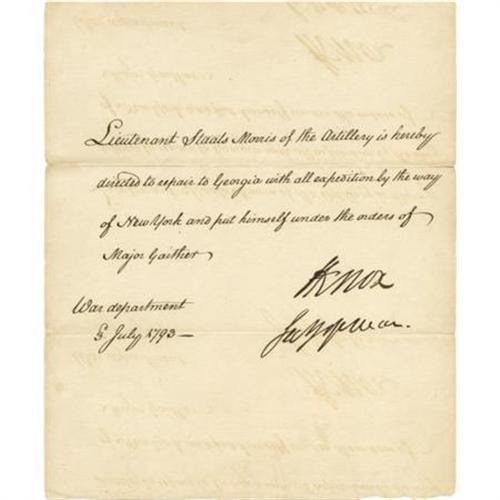 Lieutenant Staats Morris of the Artillery is hereby
directed to repair to Georgia with all expedition by the way
of New York and put himself under the orders of
Major Gaither
HKnox
War department
5 July 1793 —